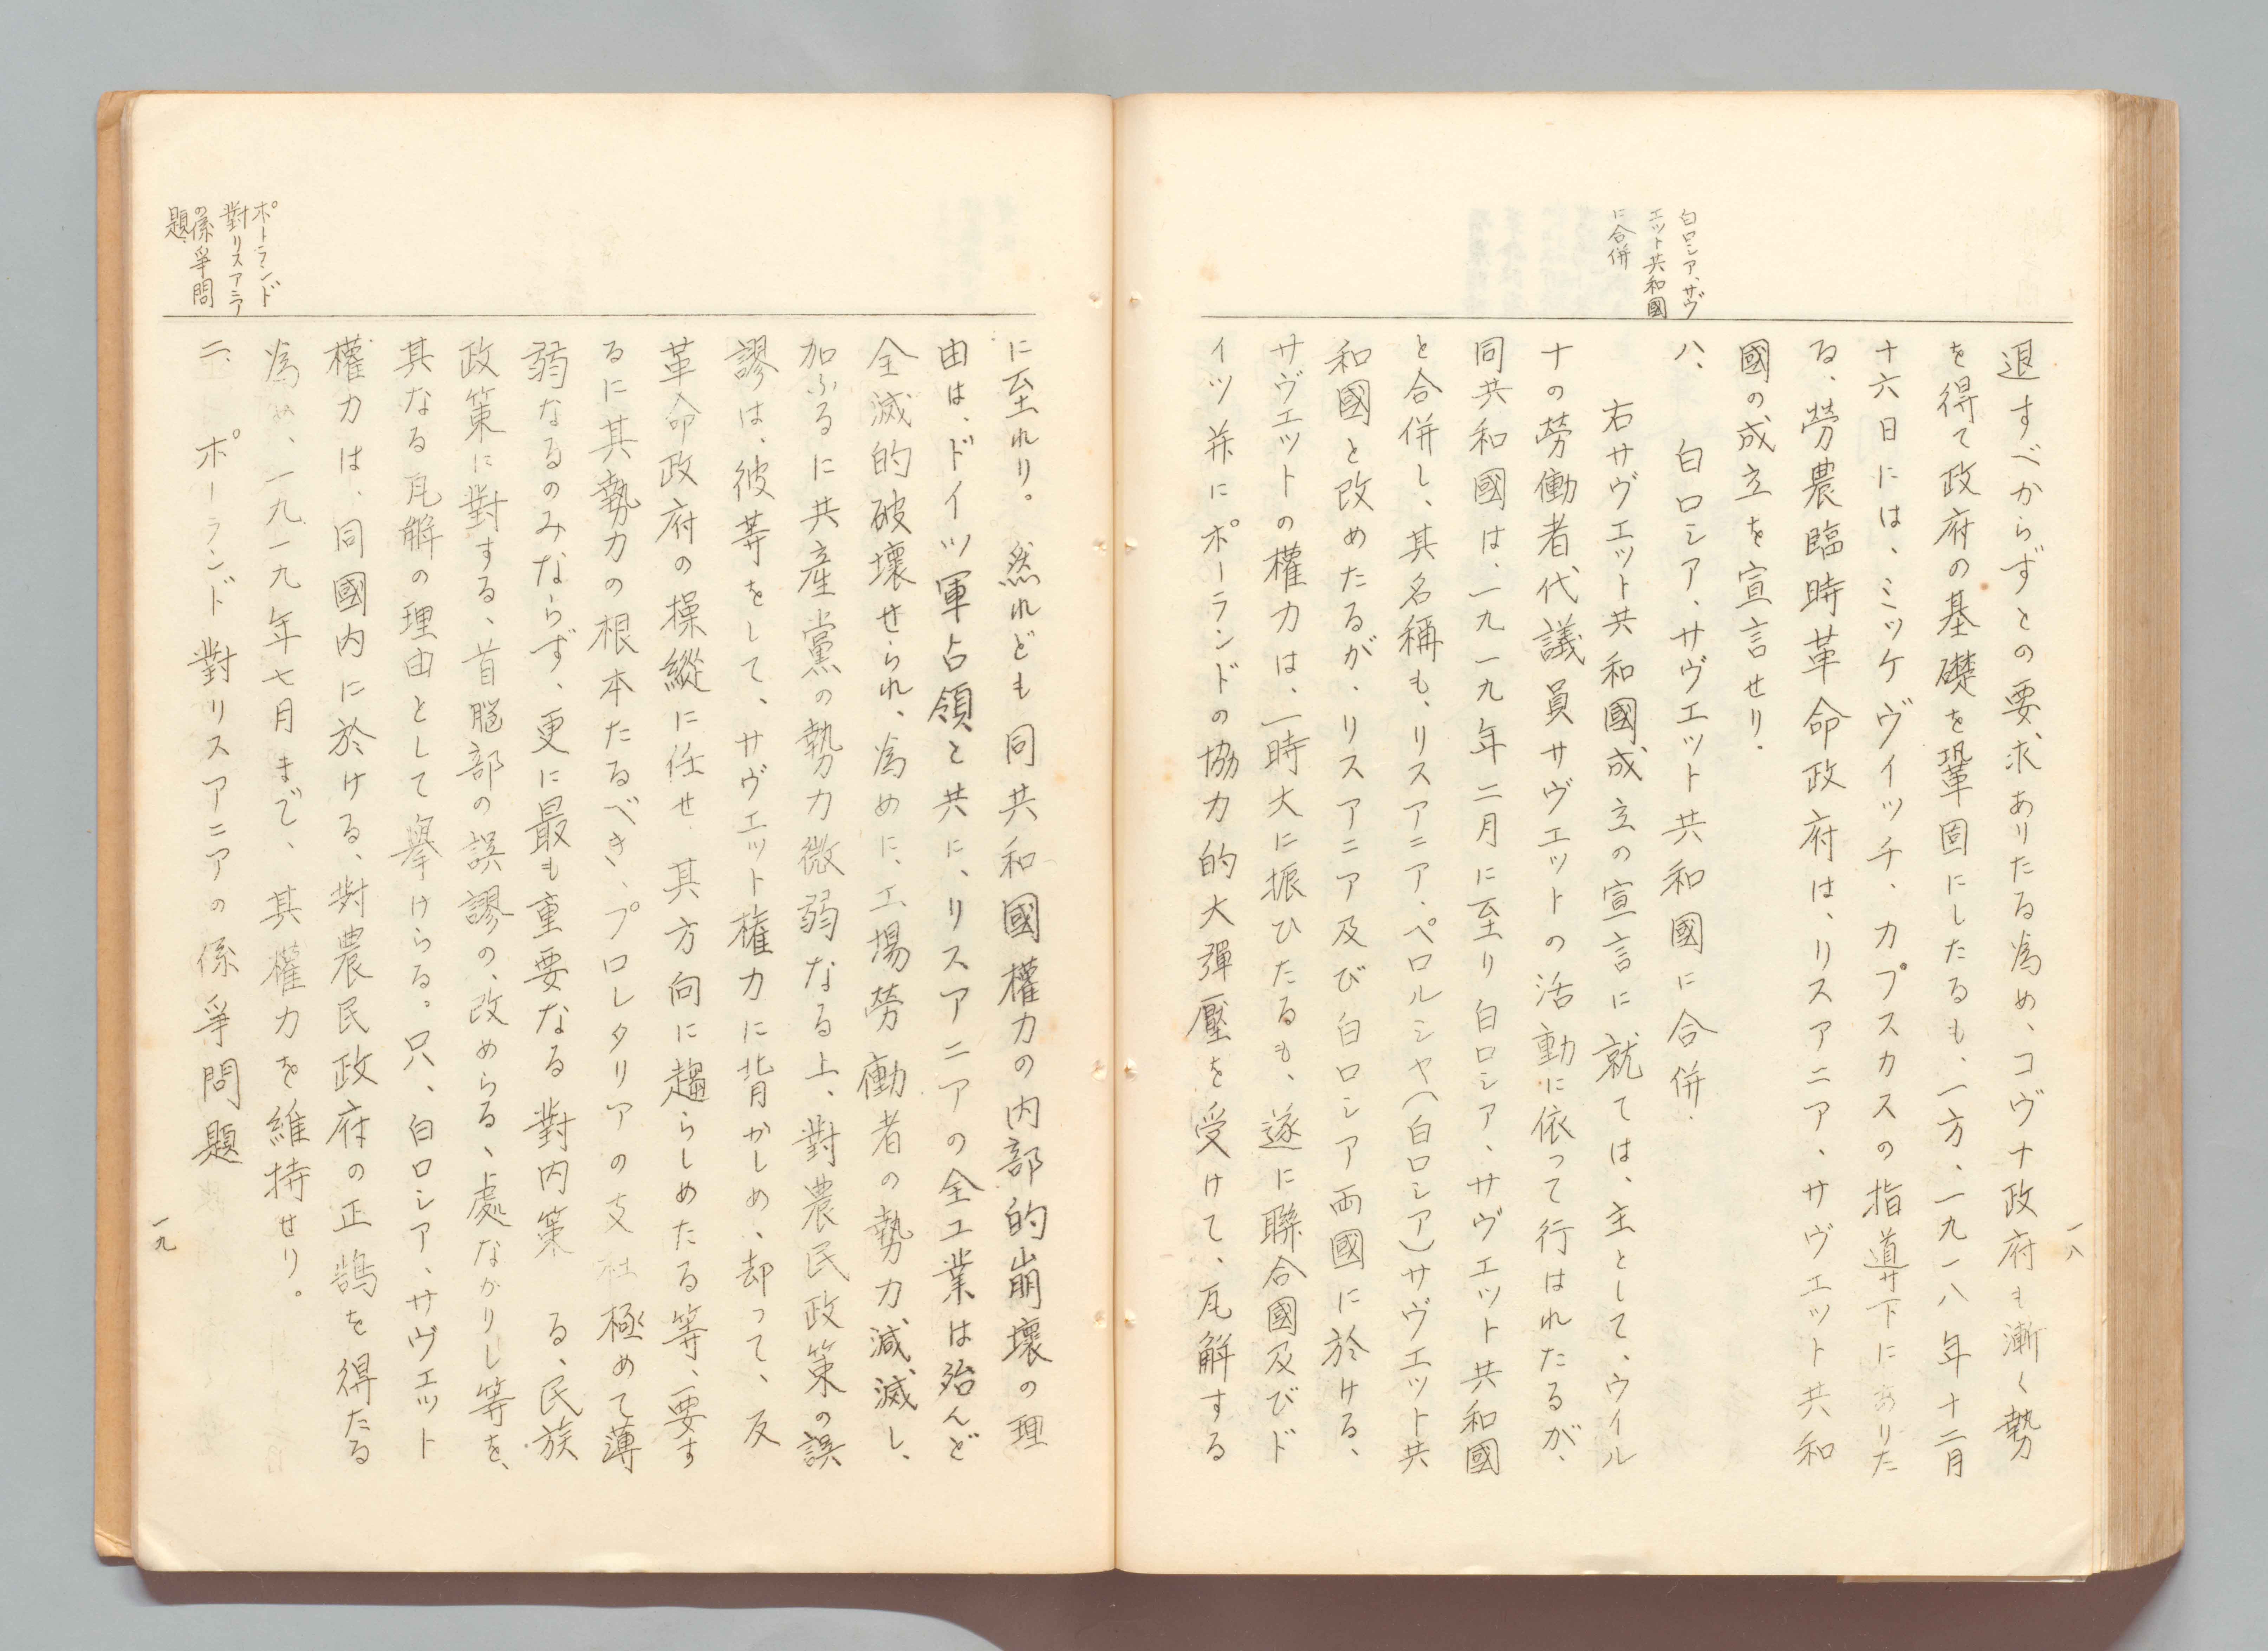 一八
白ロシア、サヴ
エット共和國
に合併
退すべからずとの要求ありたる為め、コヴナ政府も漸く勢
を得て政府の基礎を鞏固にしたるも、一方、一九一八年十二月
十六日には、ミツケヴイッチ、カプスカスの指導下にありた
る、勞農臨時革命政府は、リスアニア、サヴエット共和
國の成立を宣言せり.
八、白ロシア、サヴエット共和國に合併.
右サヴエット共和國成立の宣言に就ては、主として、ウイル
ナの勞働者代議員サヴエットの活動に依って行はれたるが、
同共和國は、一九一九年二月に至り白ロシア、サヴエット共和國
と合併し、其名稱も、リスアニア、ベロルシヤ(白ロシア)サヴエット共
和國と改めたるが、リスアニア及び白ロシア両國に於ける、
サヴエットの權力は、一時大に振ひたるも、遂に聯合國及びド
イツ並にポーランドの協力的大彈壓を受けて、瓦解する
に至れり。然れども同共和國權力の内部的崩壞の理
由は、ドイツ軍占領と共に、リスアニアの全工業は殆んど
全滅的破壞せられ、為めに、工場勞働者の勢力減滅し、
加ふるに共産黨の勢力微弱なる上、對農民政策の誤
謬は、彼等をして、サヴエット権力に背かしめ、却って、反
革命政府の操縱に任せ其方向に趨らしめたる等、要す
るに其勢力の根本たるべき、プロレタリアの支社極めて薄
弱なるのみならず、更に最も重要なる對内策る、民族
政策に對する、首脳部の誤謬の、改めらる、處なかりし等を、
其なる瓦解の理由として擧けらる。只、白ロシア、サヴエット
權力は、同國内に於ける、對農民政府の正鵠を得たる
為め、一九一九年七月まで、其權力を維持せり。
二、ポーランド對リスアニアの係爭問題
ポーランド
對リスアニア
の係爭問
題
一九